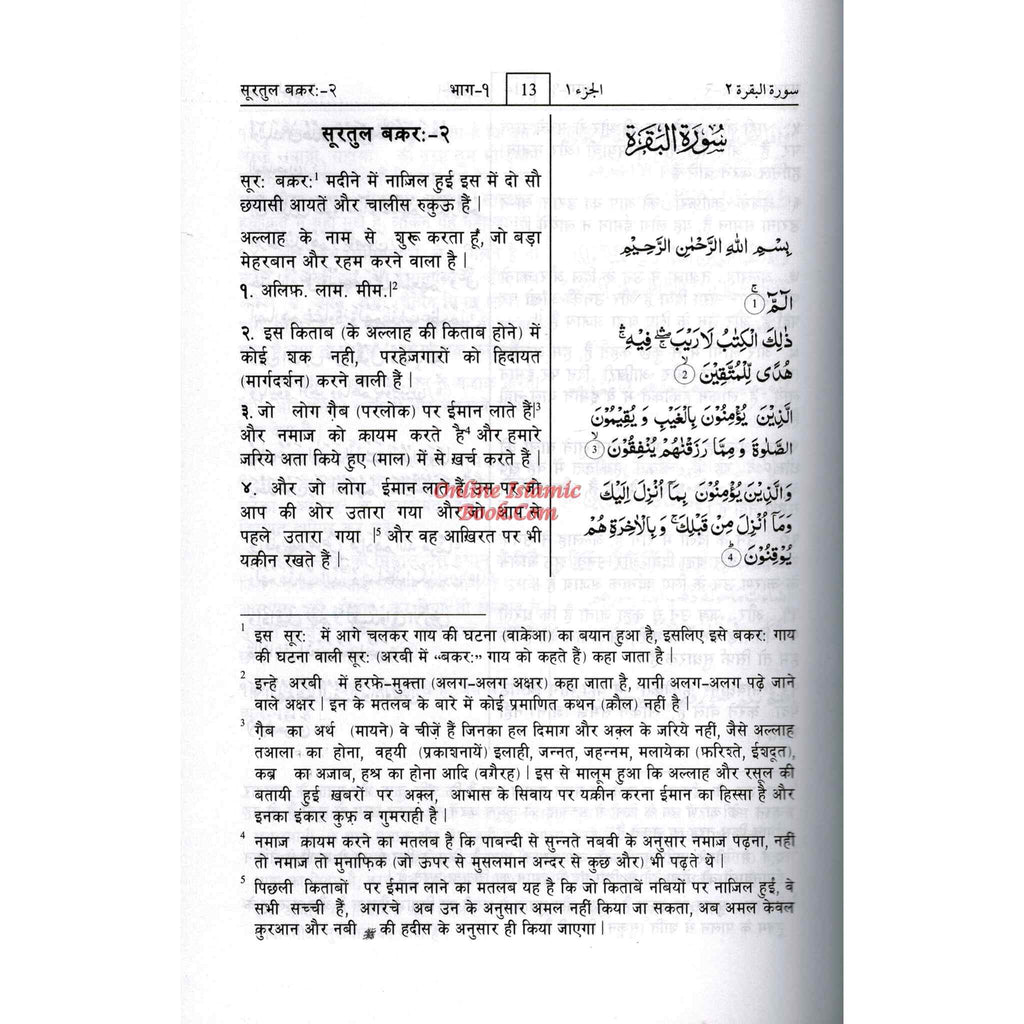 सूरतुल बक़र:-२ भाग-१ 13 الجزء ١ سورة البقرة ٢
सूरतुल बक़र:-२
सूर: बक़र:¹ मदीने में नाज़िल हुई इस में दो सौ
छयासी आयतें और चालीस रुकुऊ हैं |
अल्लाह के नाम से शुरू करता हूँ, जो बड़ा
मेहरबान और रहम करने वाला है |
१. अलिफ़. लाम. मीम.|²
२. इस किताब (के अल्लाह की किताब होने) में
कोई शक नही, परहेज़गारों को हिदायत
(मार्गदर्शन) करने वाली हैं |
३. जो लोग ग़ैब (परलोक) पर ईमान लाते हैं|³
और नमाज़ को क़ायम करते है⁴ और हमारे
जरिये अता किये हुए (माल) में से ख़र्च करते हैं |
४. और जो लोग ईमान लाते हैं उस पर जो
आप की ओर उतारा गया और जो आप से
पहले उतारा गया |⁵ और वह आख़िरत पर भी
यक़ीन रखते हैं |
سُوْرَةُ الْبَقَرَةِ
بِسْمِ اللّٰهِ الرَّحْمٰنِ الرَّحِيْمِ
الٓمّٓ ۚ ①
ذٰلِكَ الْكِتٰبُ لَا رَيْبَ ۛ فِيْهِ ۛ
هُدًى لِّلْمُتَّقِيْنَ ۙ ②
الَّذِيْنَ يُؤْمِنُوْنَ بِالْغَيْبِ وَ يُقِيْمُوْنَ
الصَّلٰوةَ وَ مِمَّا رَزَقْنٰهُمْ يُنْفِقُوْنَ ۙ ③
وَالَّذِيْنَ يُؤْمِنُوْنَ بِمَآ اُنْزِلَ اِلَيْكَ
وَمَآ اُنْزِلَ مِنْ قَبْلِكَ ۚ وَبِالْاٰخِرَةِ هُمْ
يُوْقِنُوْنَ ؕ ④
Online Islamic
Book.Com
¹ इस सूर: में आगे चलकर गाय की घटना (वाक़ेआ) का बयान हुआ है, इसलिए इसे बकर: गाय
की घटना वाली सूर: (अरबी में “बकर:” गाय को कहते हैं) कहा जाता है |
² इन्हे अरबी में हरफे-मुक्ता (अलग-अलग अक्षर) कहा जाता है, यानी अलग-अलग पढ़े जाने
वाले अक्षर | इन के मतलब के बारे में कोई प्रमाणित कथन (क़ौल) नहीं है |
³ ग़ैब का अर्थ (मायने) वे चीज़ें हैं जिनका हल दिमाग और अक़्ल के जरिये नहीं, जैसे अल्लाह
तआला का होना, वहयी (प्रकाशनायें) इलाही, जन्नत, जहन्नम, मलायेका (फ़रिश्ते, ईशदूत),
कब्र का अजाब, हश्र का होना आदि (वग़ैरह) | इस से मालूम हुआ कि अल्लाह और रसूल की
बतायी हुई ख़बरों पर अक़्ल, आभास के सिवाय पर यक़ीन करना ईमान का हिस्सा है और
इनका इंकार कुफ़्र व गुमराही है |
⁴ नमाज़ क़ायम करने का मतलब है कि पाबन्दी से सुन्नते नबवी के अनुसार नमाज पढ़ना, नहीं
तो नमाज तो मुनाफ़िक (जो ऊपर से मुसलमान अन्दर से कुछ और) भी पढ़ते थे |
⁵ पिछली किताबों पर ईमान लाने का मतलब यह है कि जो किताबें नबियों पर नाज़िल हुई, वे
सभी सच्ची हैं, अगरचे अब उन के अनुसार अमल नहीं किया जा सकता, अब अमल केवल
क़ुरआन और नबी ﷺ की हदीस के अनुसार ही किया जाएगा |